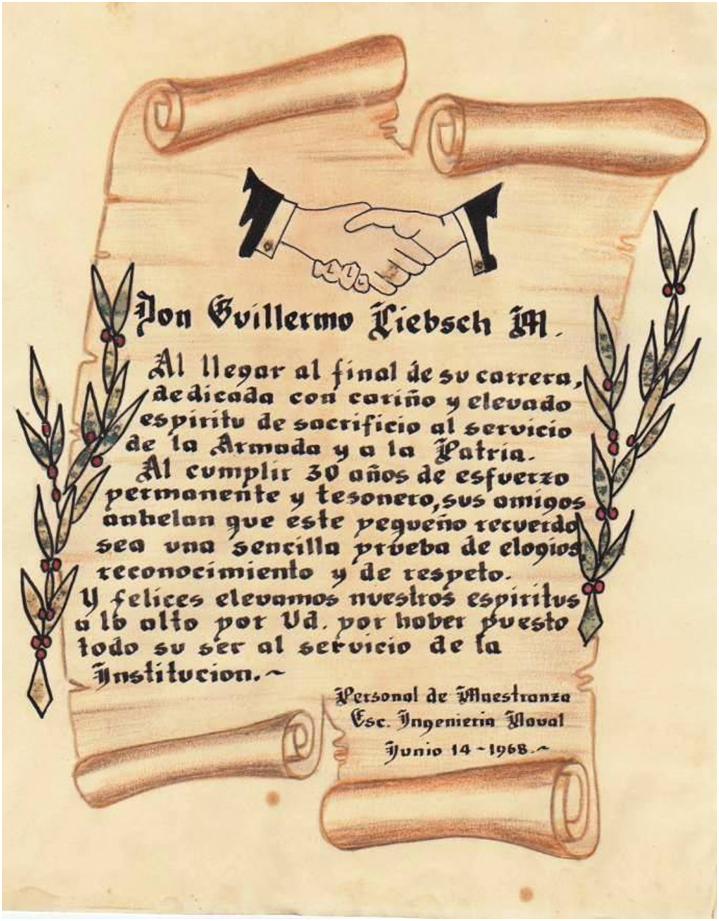 Don Guillermo Liebsch M.
Al llegar al final de su carrera,
dedicada con cariño y elevado
espiritu de sacrificio al servicio
de la Armada y a la Patria.
Al cumplir 30 años de esfuerzo
permanente y tesonero, sus amigos
anhelan que este pequeño recuerdo
sea una sencilla prueba de elogios
reconocimiento y de respeto.
Y felices elevamos nuestros espiritus
a lo alto por Ud. por haber puesto
todo su ser al servicio de la
Institucion.~
Personal de Maestranza
Esc. Ingenieria Naval
Junio 14-1968.~